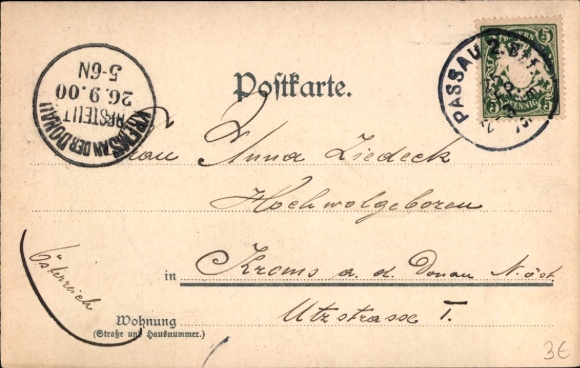 PASSAU 2.
BAYERN
5 5
PFENNIG
KREMS AN DER DONAU
BESTELLT
26.9.00
5-6N
Postkarte.
Frau Anna Ziedeck
Hochwolgeboren
in Krems a. d. Donau N. öst
Utzstrasse 7.
Österreich
Wohnung
(Straße und Hausnummer.)
3€